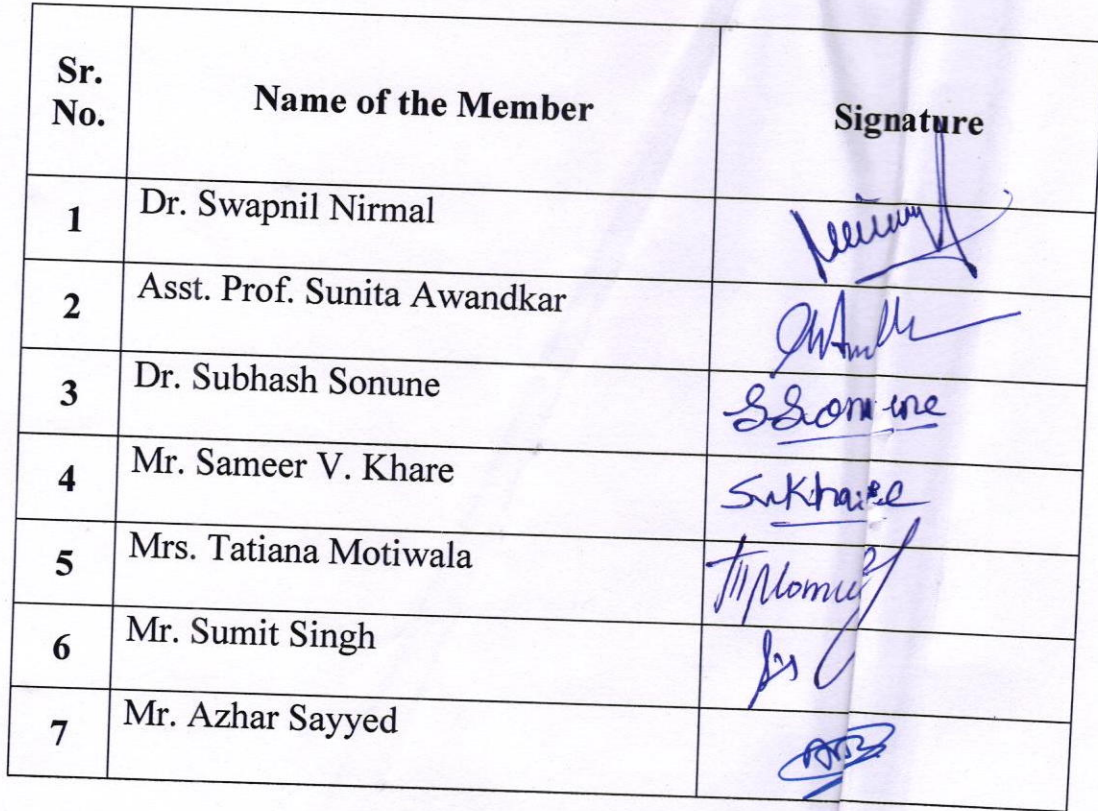 Sr. No.
Name of the Member
Signature
1 Dr. Swapnil Nirmal
2 Asst. Prof. Sunita Awandkar
3 Dr. Subhash Sonune SSonune
4 Mr. Sameer V. Khare SvKhare
5 Mrs. Tatiana Motiwala
6 Mr. Sumit Singh
7 Mr. Azhar Sayyed